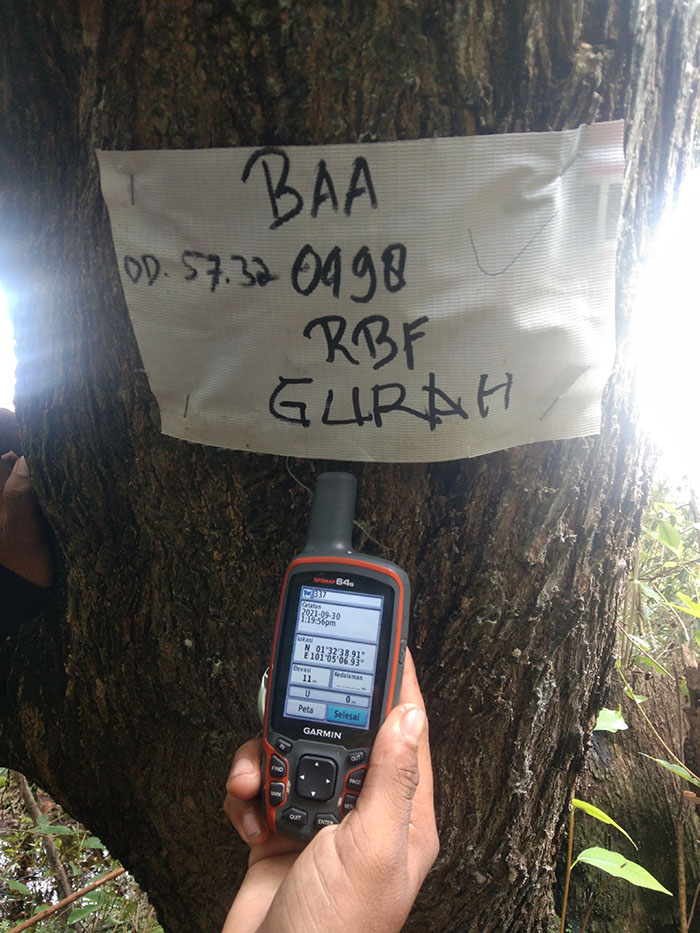 BAA
OD. 57.32 0498
RBF
GURAH
GPSMAP 64s
337
Catatan
2021-09-30
1:19:56pm
Lokasi
N 01°32'38.91"
E 101°05'06.93"
Elevasi Kedalaman
11m
U 0m
Peta Selesai
GARMIN
IN OUT
FIND PAGE
MARK
QUIT ENTER